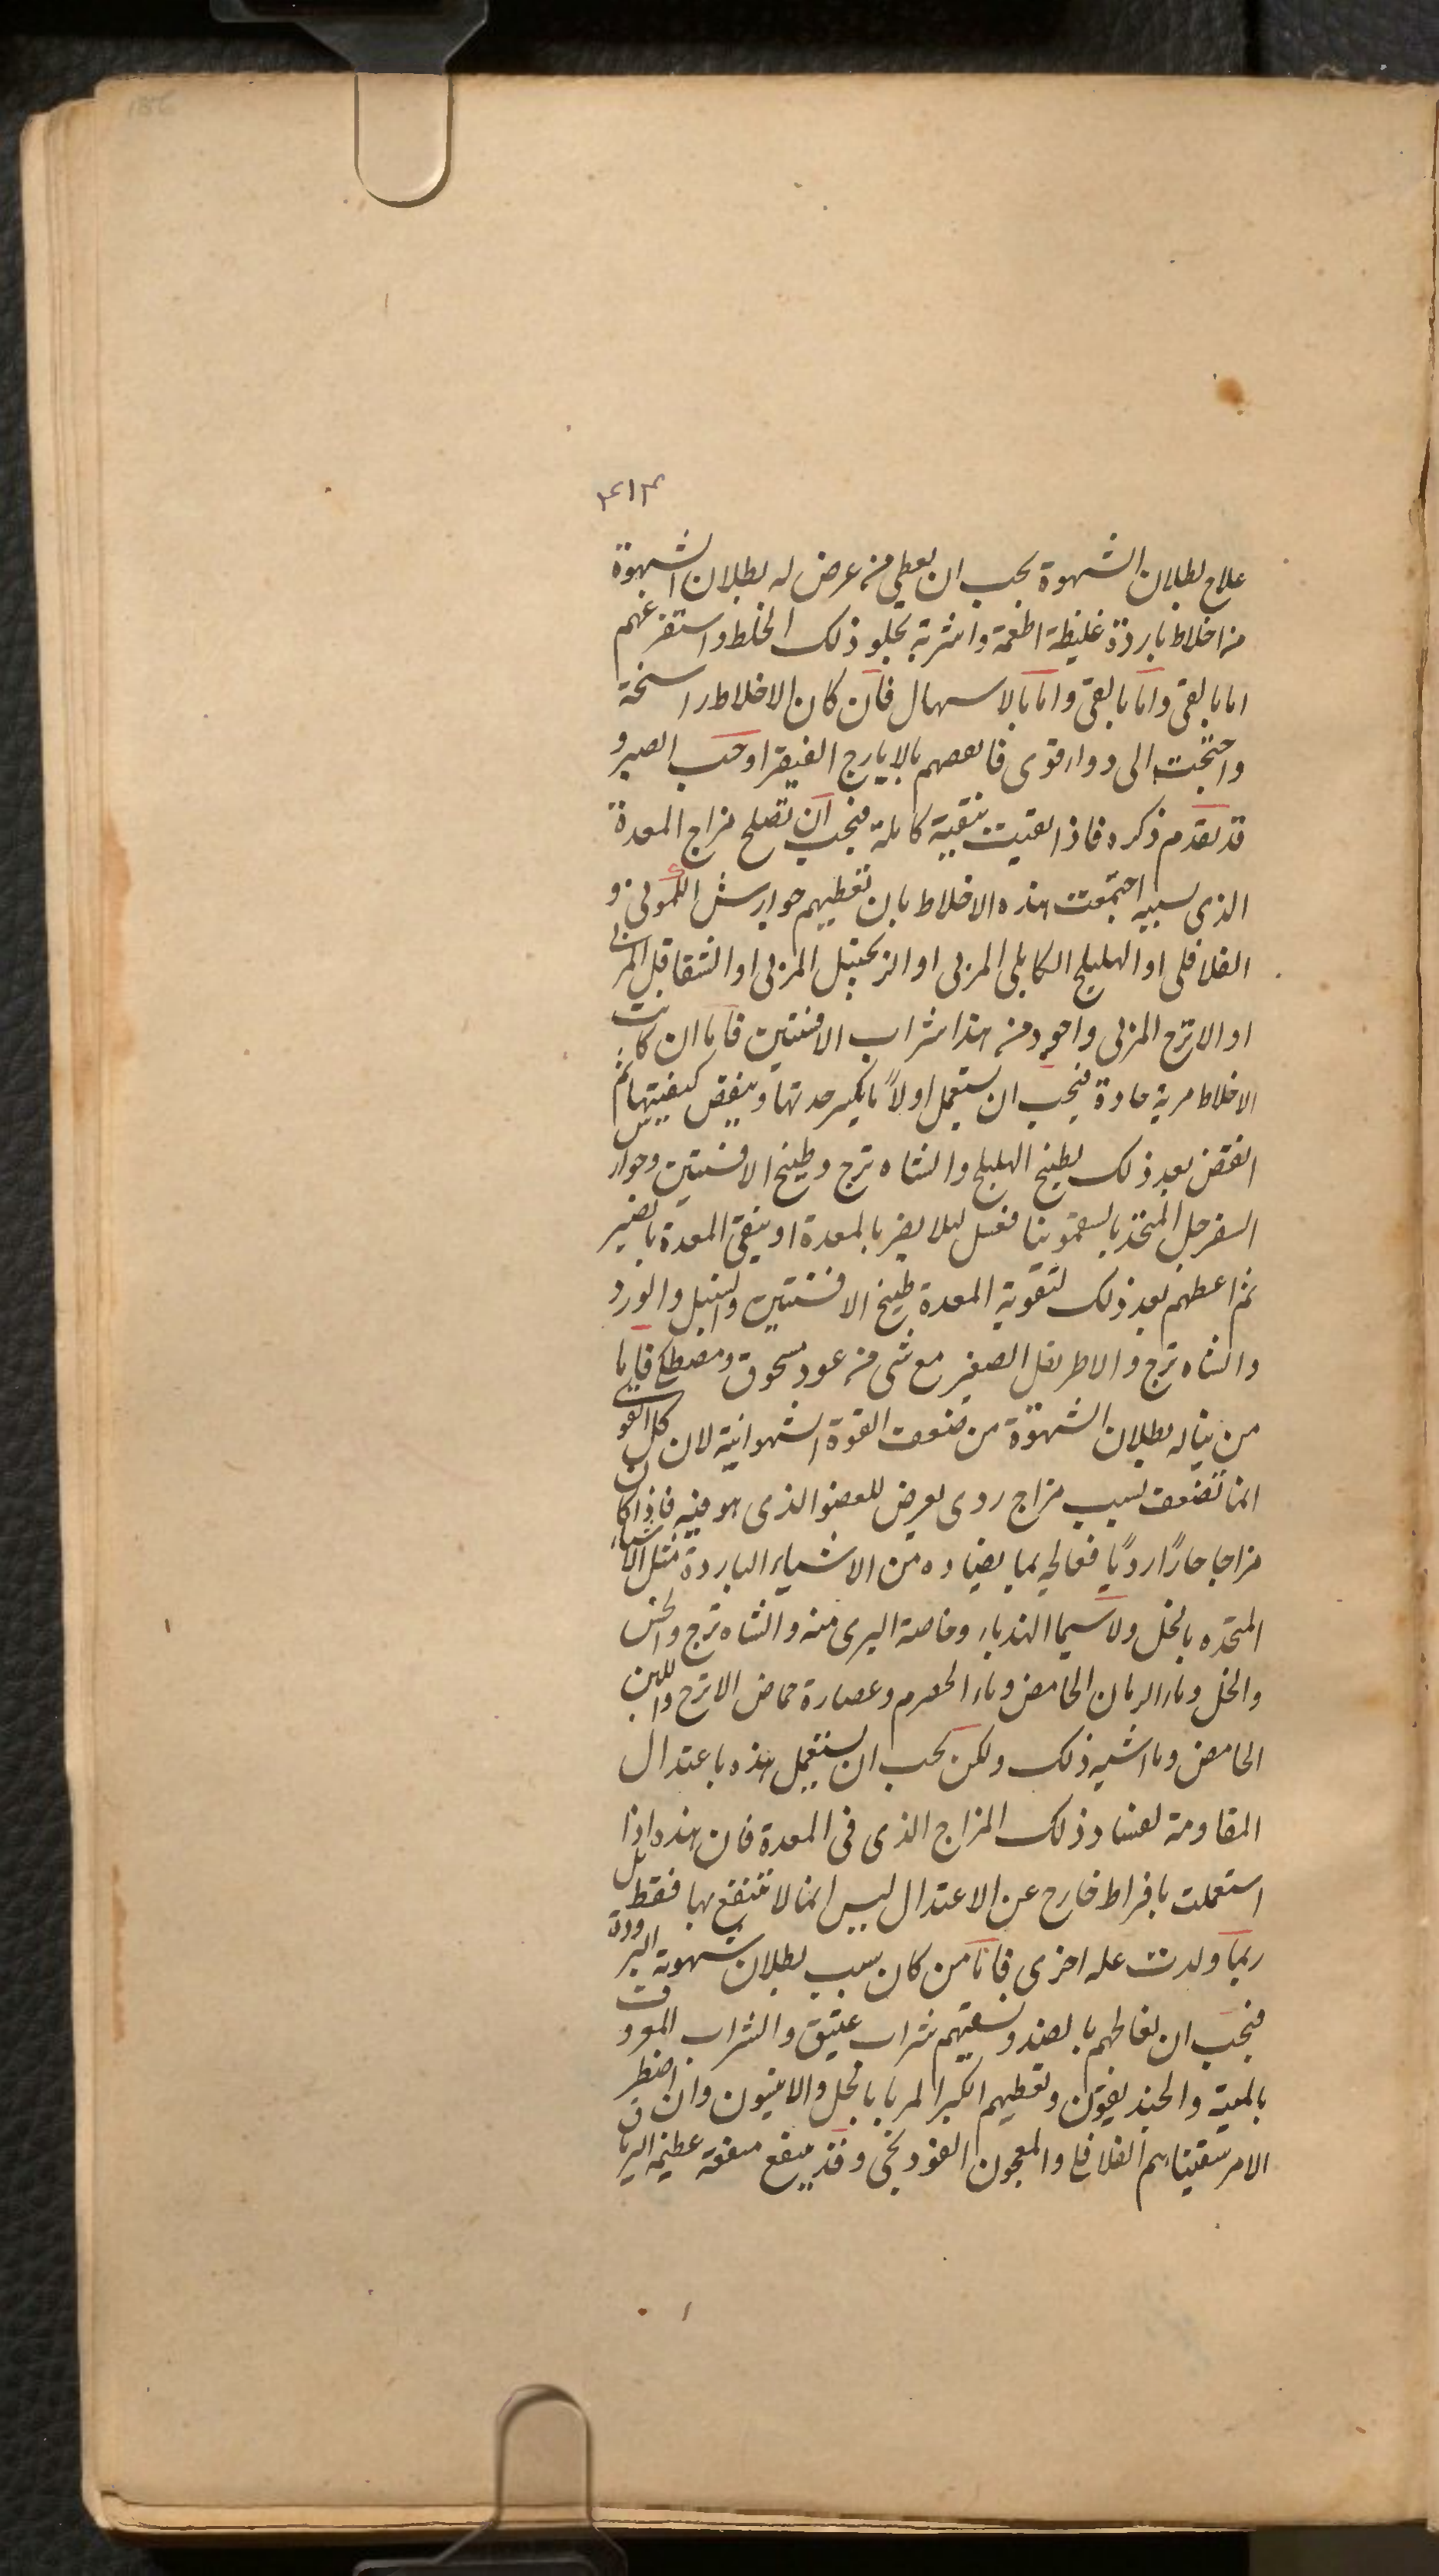 ٣١٣
علاج بطلان الشهوة يجب ان يعطى من عرض له بطلان الشهوة
من اخلاط باردة غليظة اطعمة واشربة تجلو ذلك الخلط واستفرغهم
اما بالقى واما بالقى واما بالاسهال فان كان الاخلاط راسخة
واحتجت الى دواء قوى فانفضهم بالايارج الفيقرا وحب الصبر و
قد تقدم ذكره فاذا نقيت تنقية كاملة فيجب ان تصلح مزاج المعدة
الذى بسببه اجتمعت هذه الاخلاط بان تعطيهم جوارش الكمونى و
الفلافلى او الهليلج الكابلى المربى او الزنجبيل المربى او الشقاقل المربى
او الاترج المربى واجود من هذا شراب الافسنتين فاما ان كانت
الاخلاط مرية حادة فيجب ان يستعمل اولاً ما يكسر حدتها وينقص كيفيتها ثم
انفض بعد ذلك بطبيخ الهليلج والشاه ترج وطبيخ الافسنتين وجوارس
السفرجل المتخذ بالسقمونيا فعسل ليلا يضر بالمعدة او ينقى المعدة بالصبر
ثم اعطهم بعد ذلك لتقوية المعدة طبيخ الافسنتين والسنبل والورد
والشاه ترج والاطريفل الصغير مع شى من عود مسحوق ومصطكى فاما
من يناله بطلان الشهوة من ضعف القوة الشهوانية لان كل القوى
انما تضعف بسبب مزاج ردى يعرض للعضو الذى هو فيه فاذا كان
مزاجا حارًا رديًا فعالجه بما يضاده من الاشياء الباردة مثل الاشياء
المتخذه بالخل ولا سيما الهندباء وخاصة البرى منه والشاه ترج والخس
والخل وماء الرمان الحامض وماء الحصرم وعصارة حماض الاترج واللبن
الحامض وما اشبه ذلك ولكن يجب ان يستعمل هذه باعتدال
المقاومة لفساد ذلك المزاج الذى فى المعدة فان هذه اذا
استعملت بافراط خارج عن الاعتدال ليس انما لا تنتفع بها فقط بل
ربما ولدت عله اخرى فاما من كان سبب بطلان شهوته البرودة
فيجب ان تعالجهم بالضد وتسقيهم شراب عتيق والشراب المعروف
بالميبة والخنديقون وتعطيهم الكبر المربا بالخل والانيسون وان اضطر
الامر سقيناهم الفلافلى والمعجون الفودنجى وقد ينفع منفعة عظيمة الترياق